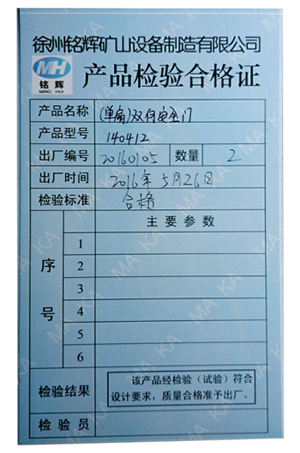 徐州铭辉矿山设备制造有限公司
MH
铭辉
MING HUI
产品检验合格证
产品名称 (单扇)双向安全门
产品型号 140412
出厂编号 20160105 数量 2
出厂时间 2016年5月26日
检验标准 合格
主要参数
序号
1
2
3
4
5
6
检验结果 该产品经检验（试验）符合
设计要求，质量合格准予出厂。
检验员
MA KA